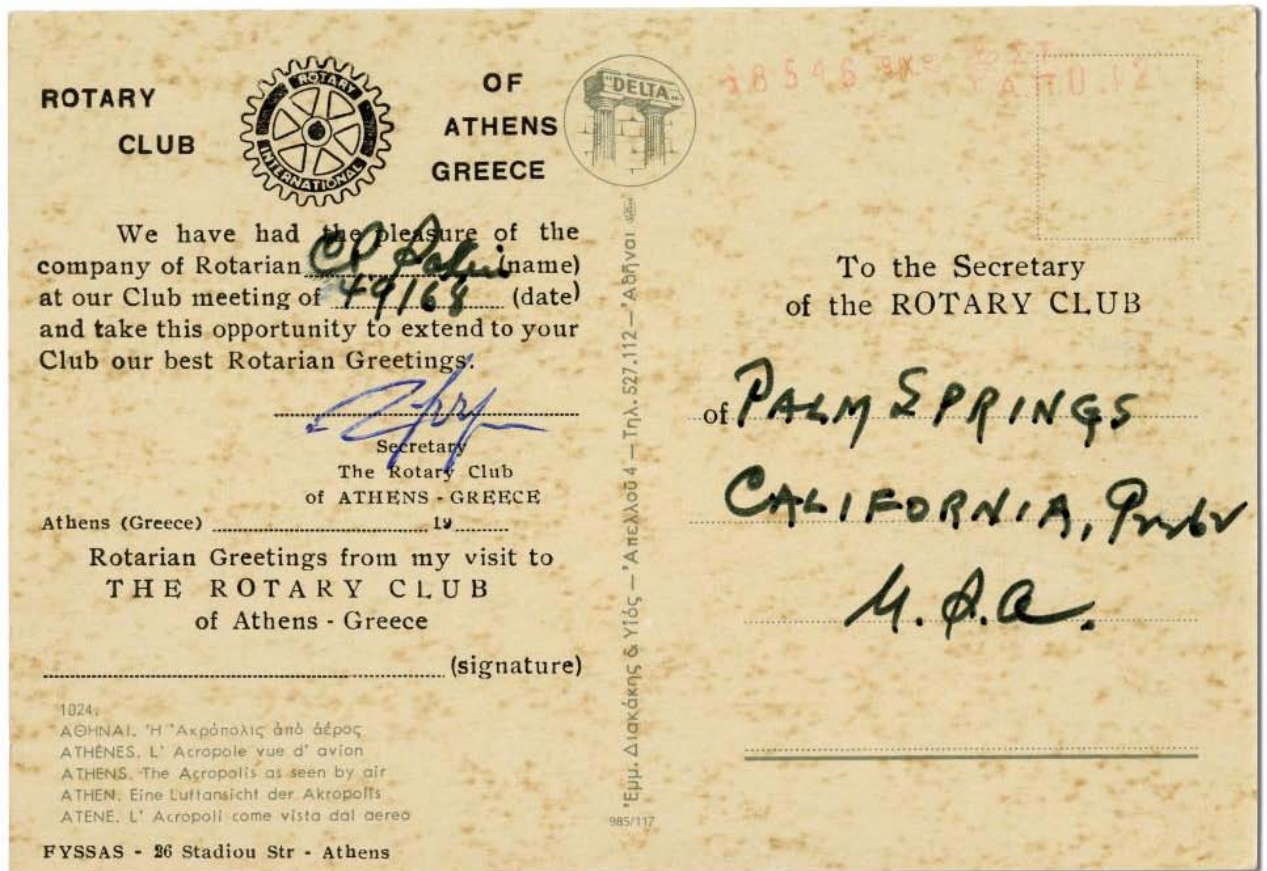 ROTARY
CLUB
ROTARY
INTERNATIONAL
OF
ATHENS
GREECE
We have had the pleasure of the
company of Rotarian C P (name)
at our Club meeting of (date)
and take this opportunity to extend to your
Club our best Rotarian Greetings.
Secretary
The Rotary Club
of ATHENS - GREECE
Athens (Greece) 19
Rotarian Greetings from my visit to
THE ROTARY CLUB
of Athens - Greece
(signature)
1024.
ΑΘΗΝΑΙ. Ἡ Ἀκρόπολις ἀπὸ ἀέρος
ATHÈNES. L' Acropole vue d' avion
ATHENS. The Acropolis as seen by air
ATHEN. Eine Luftansicht der Akropolis
ATENE. L' Acropoli come vista dal aereo
FYSSAS - 26 Stadiou Str - Athens
"DELTA"
Ἐμμ. Διακάκης & Υἱός — Ἀπελλοῦ 4 — Τηλ. 527.112 — Ἀθῆναι
985/117
To the Secretary
of the ROTARY CLUB
of PALM SPRINGS
CALIFORNIA,
U.S.A.